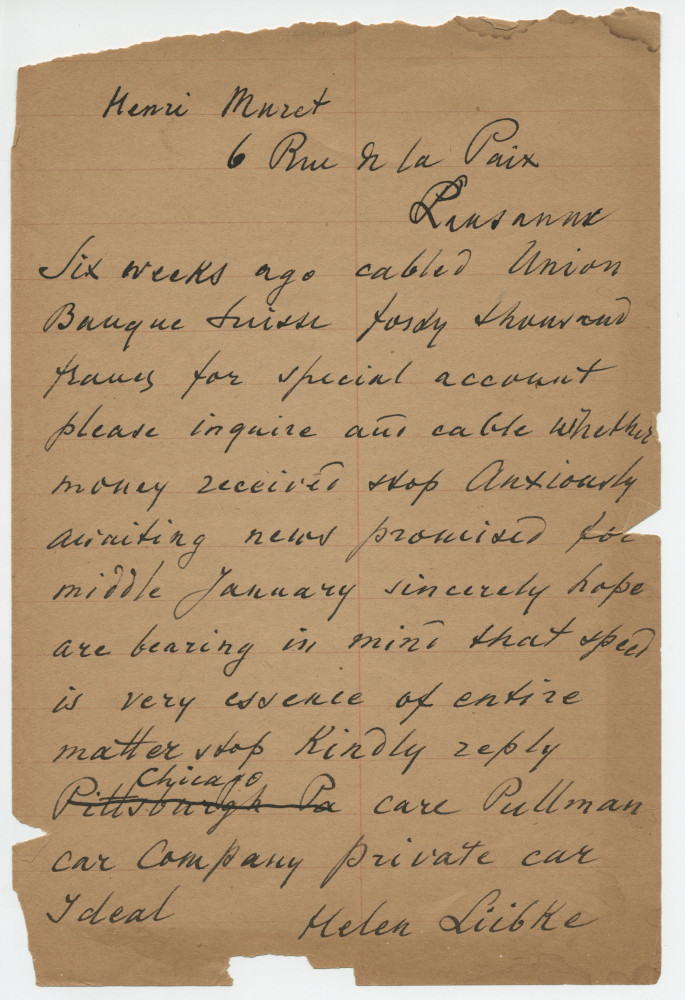 Henri Muret
6 Rue de la Paix
Lausanne
Six weeks ago cabled Union
Banque Suisse forty thousand
francs for special account
please inquire and cable whether
money received stop Anxiously
awaiting news promised for
middle January sincerely hope
are bearing in mind that speed
is very essence of entire
matter stop Kindly reply
Chicago
Pittsburgh Pa care Pullman
car Company private car
Ideal Helen Lübke